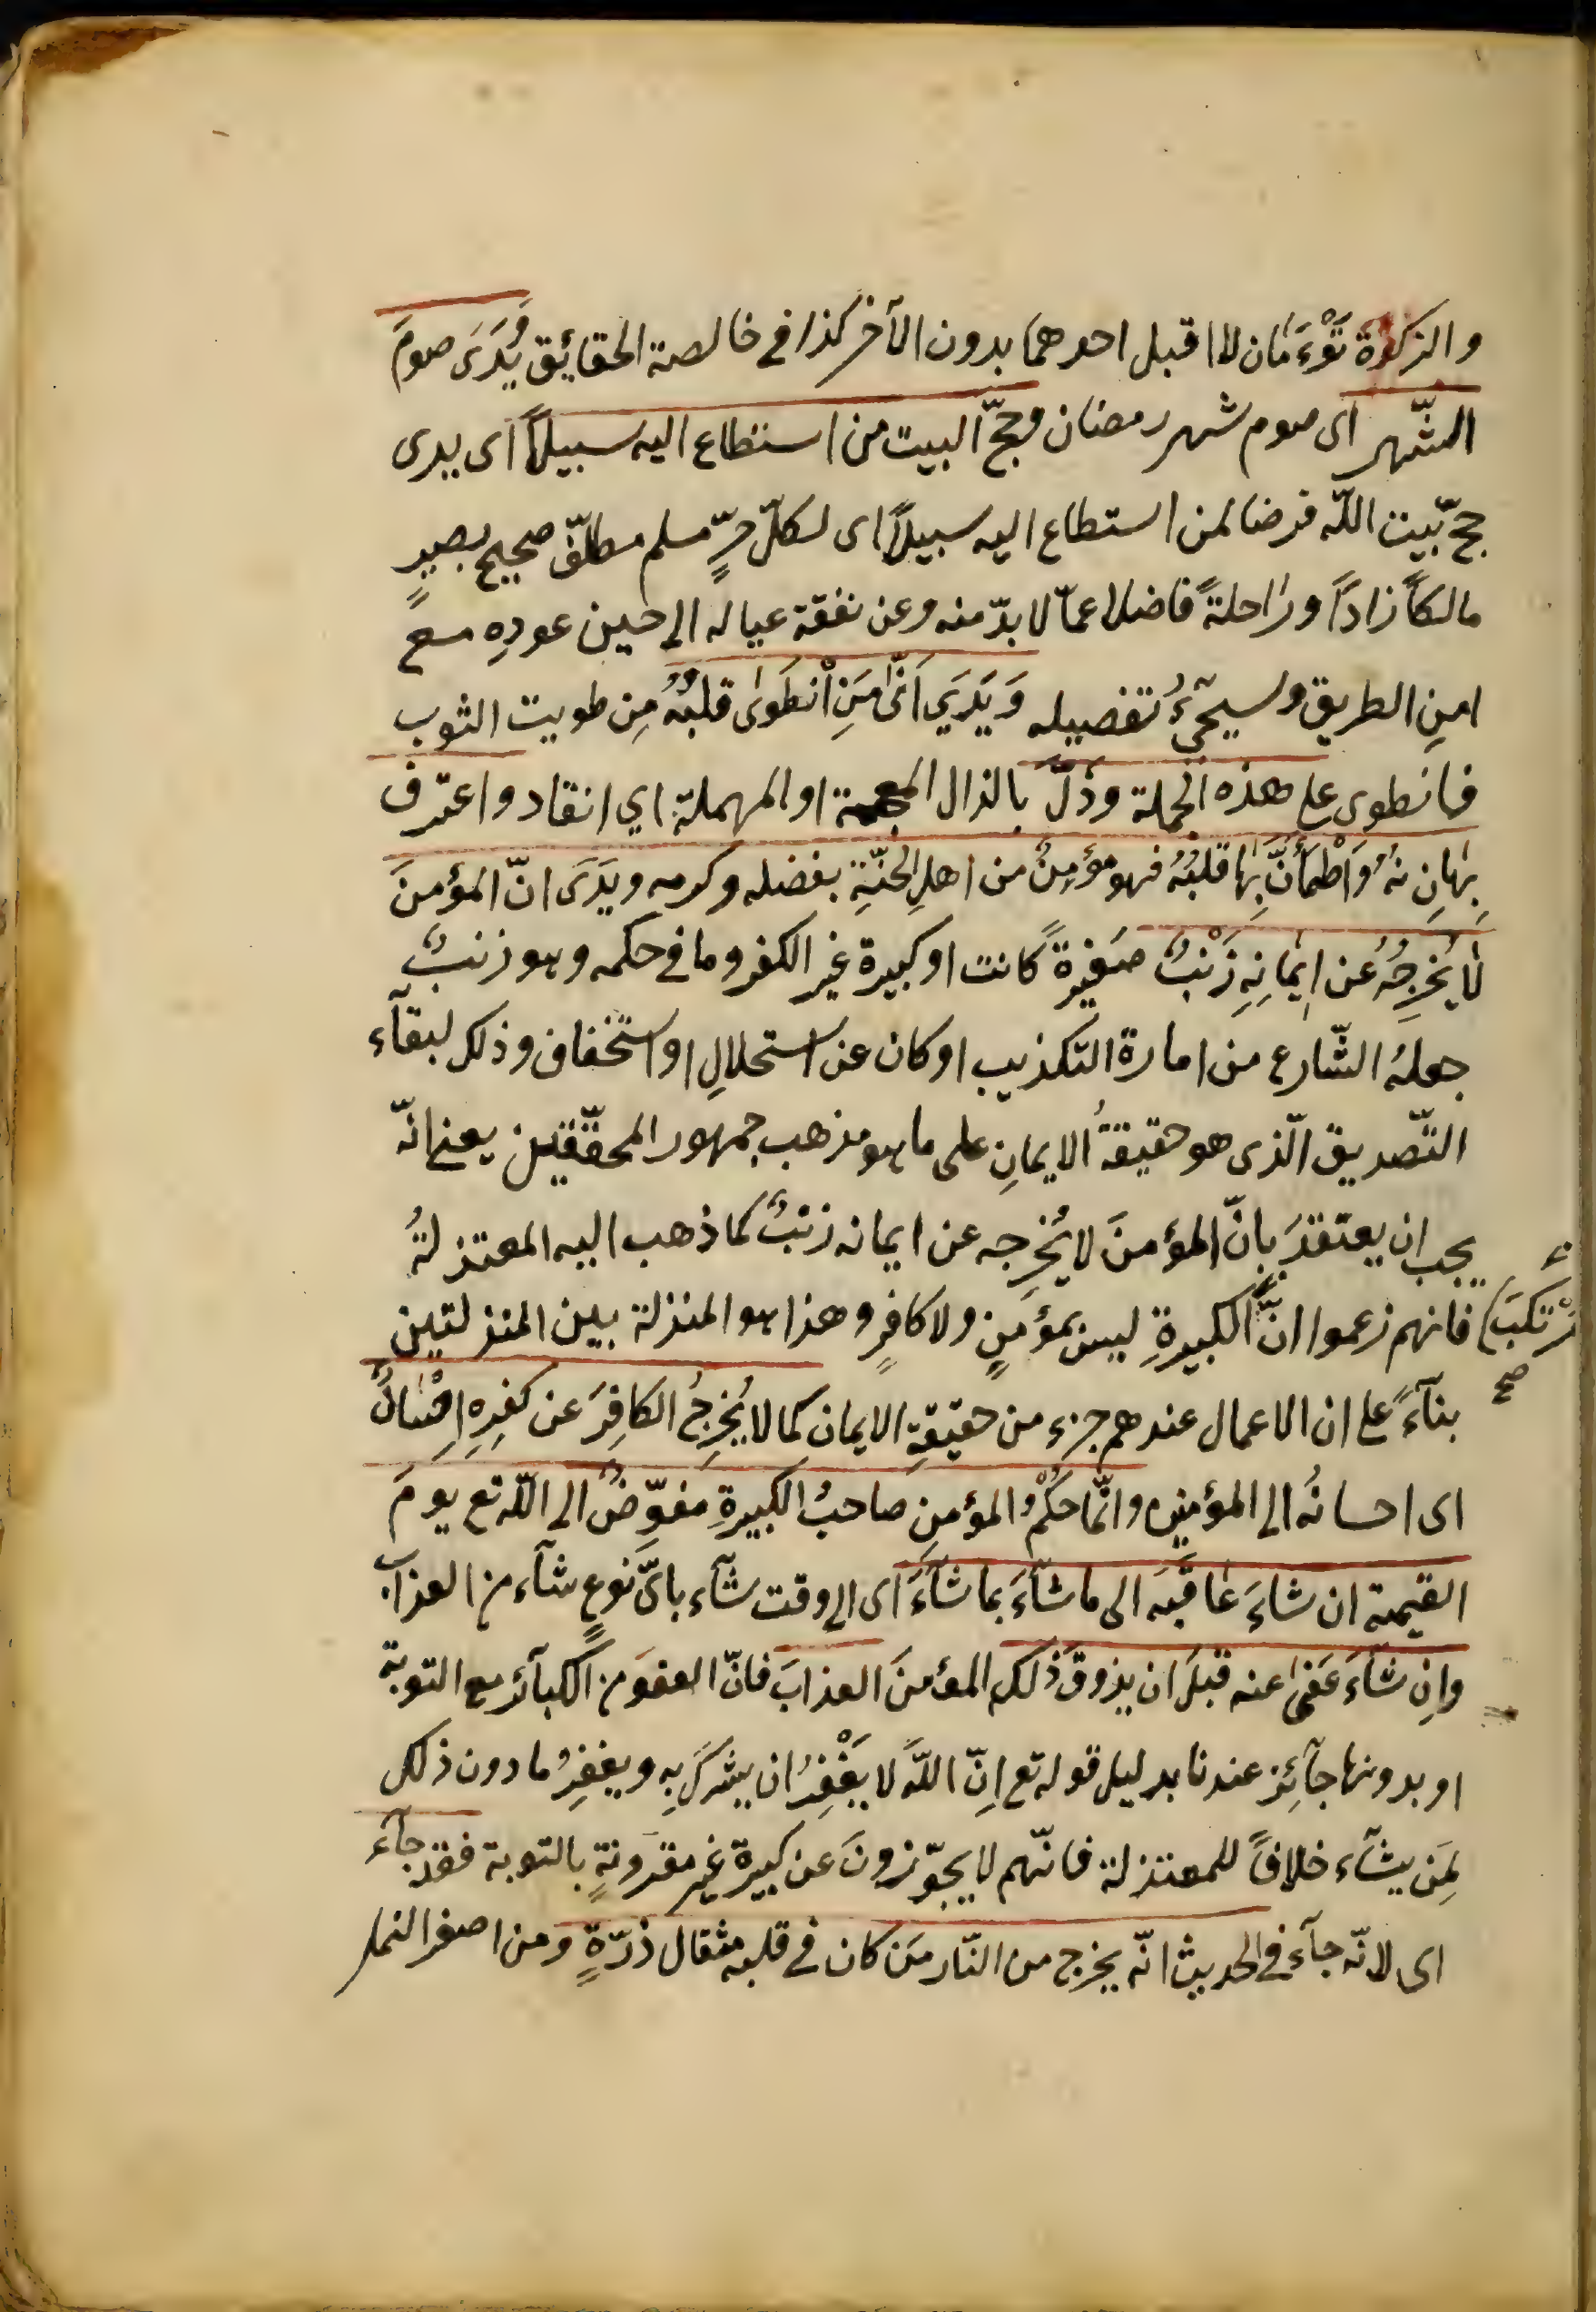 والزكوة تَوْءَمَان لا اقبل احدهما بدون الآخر كذا في خالصة الحقائق وَيَرَى صومَ
الشّهر اى صوم شهر رمضان وحجّ البيت من استطاع اليه سبيلاً اى يرى
حجّ بيت اللّه فرضا لمن استطاع اليه سبيلاً اى لكلّ حرٍّ مسلم مكلّف صحيح بصيرٍ
مالكاً زاداً وراحلةً فاضلا عمّا لا بدّ منه وعن نفقة عياله الى حين عودِه مع
امنِ الطريق وسيجيءُ تفصيله وَيَرَي اَنَّ مَنِ انْطَوىٰ قلبُهُ مِن طويت الثوب
فانطوى على هذه الجملة وذلَّ بالذال المعجمة او المهملة اي انقاد واعترف
بِهَا لِسَانُهُ وَاطْمَأَنَّ بِهَا قلبُهُ فهو مؤمِنٌ من اهلِ الجنّةِ بفضله وكرمه ويَرَى انّ المؤمنَ
لَا يُخرِجُهُ عن ايمانِهِ ذَنْبٌ صغيرةً كانت او كبيرة غير الكفر وما في حكمه وهو ذنبٌ
جعلهُ الشّارع من امارة التكذيب او كان عن استحلالِ او استخفاف وذلك لبقآء
التّصديق الّذى هو حقيقةُ الايمانِ على ما هو مذهب جمهور المحقّقين يعنى انّه
يجب ان يعتقدَ بانّ المؤمنَ لا يُخرِجه عن ايمانه ذنبٌ كما ذهب اليه المعتزلةُ
فانهم زعموا انّ الكبيرةِ ليس بمؤمنٍ ولا كافرٍ وهذا هو المنزلة بين المنزلتين
مُرْتكبَ صح
بنآءً على ان الاعمال عندهم جزء من حقيقةِ الايمان كما لا يُخرِجُ الكافِرَ عن كفرِهِ احْسَانُهُ
اى احسانُه الى المؤمنين وانّما حكْمُ المؤمنِ صاحبُ الكبيرةِ مفوّضٌ الى اللّه تع يومَ
القيمة ان شاءَ عَاقَبَه الى ما شآءَ بما شآءَ اى الى وقت شآء باىّ نوعٍ شآء من العذاب
وانِ شآءَ عَفىٰ عنه قبلَ ان يذوقَ ذلك المؤمنَ العذابَ فانّ العفوَ من الكبآئر مع التوبة
او بدونها جآئز عندنا بدليل قوله تع اِنّ اللّهَ لا يَغْفِرُ ان يشركَ بِه ويغفِرُ ما دون ذلك
لِمَن يشآء خلافاً للمعتزلة فانّهم لا يجوّزونَ عن كبيرة غير مقرونةٍ بالتوبة فقد جآء
اى لانّه جآء في الحديث انّه يخرج من النّار مَن كان في قلبه مثقال ذرّةٍ ومن اصغر النمل